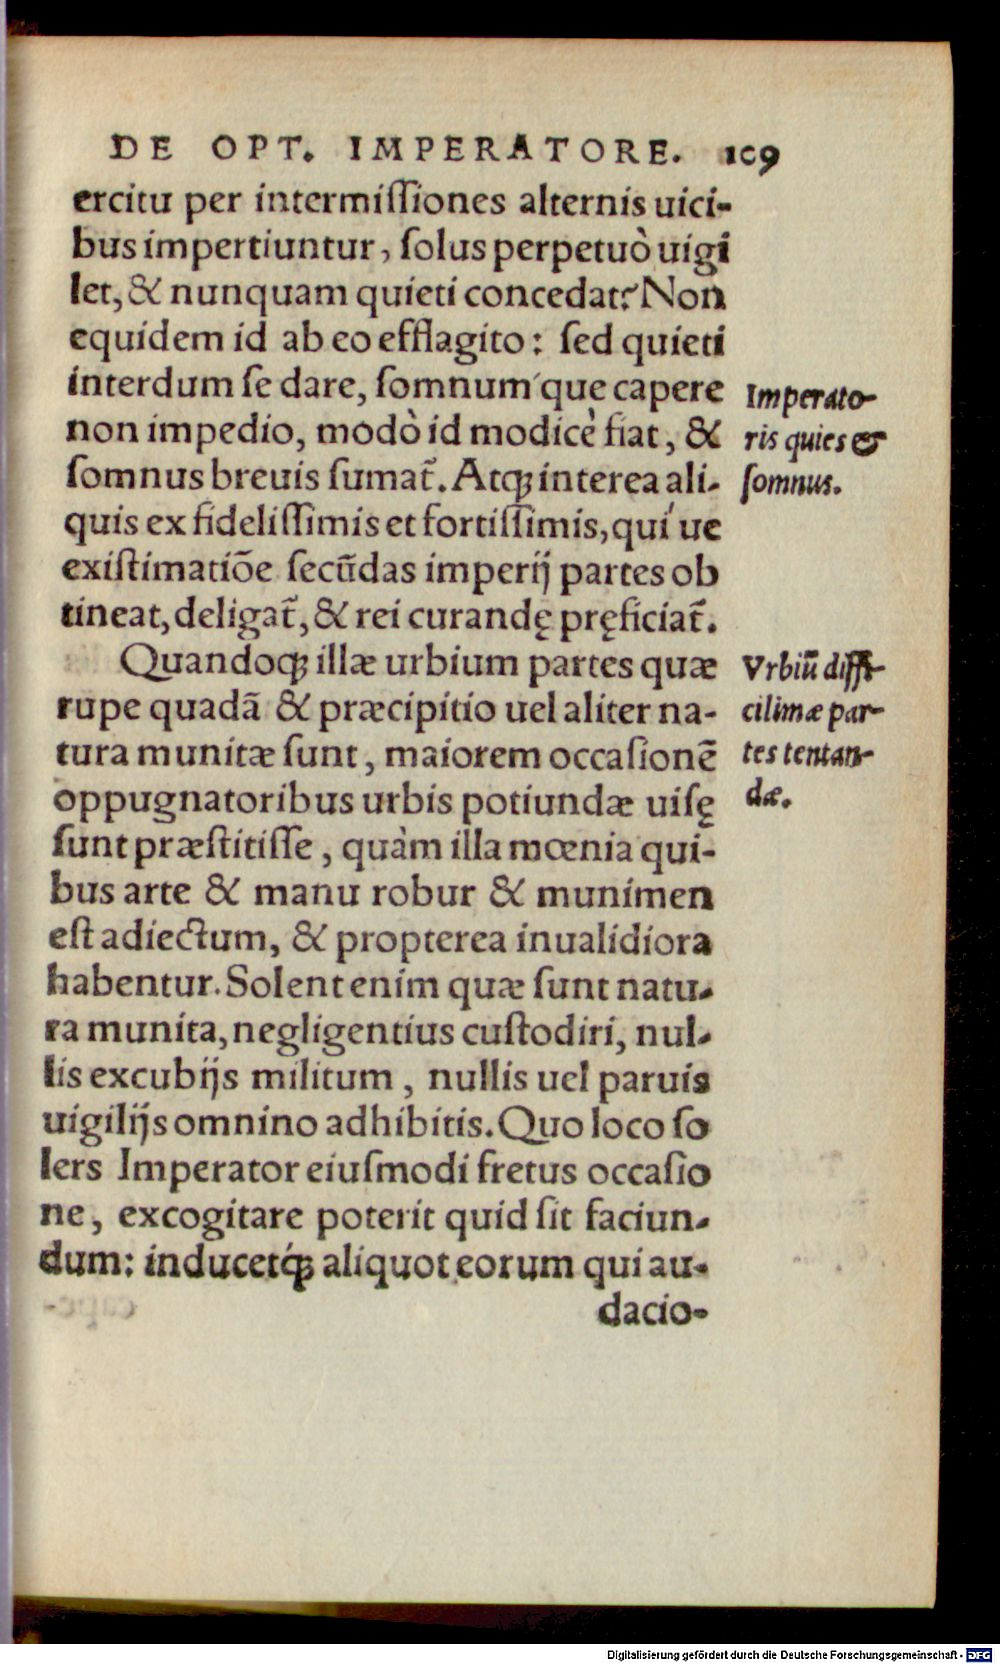 DE OPT. IMPERATORE. 109
ercitu per intermiſſiones alternis uici-
bus impertiuntur, ſolus perpetuò uigi
let, & nunquam quieti concedat? Non
equidem id ab eo efflagito: ſed quieti
interdum ſe dare, ſomnum´que capere
non impedio, modò id modicè fiat, &
ſomnus breuis ſumat̃. Atq; interea ali-
quis ex fideliſſimis et fortiſſimis, qui´ue
exiſtimatiõe ſecũdas imperij partes ob
tineat, deligat̃, & rei curandę pręficiat̃.
Imperato-
ris quies &
ſomnus.
Quandoq; illæ urbium partes quæ
rupe quadã & præcipitio uel aliter na-
tura munitæ ſunt, maiorem occaſionẽ
oppugnatoribus urbis potiundæ uiſę
ſunt præſtitiſſe, quàm illa mœnia qui-
bus arte & manu robur & munimen
eſt adiectum, & propterea inualidiora
habentur. Solent enim quæ ſunt natu-
ra munita, negligentius cuſtodiri, nul-
lis excubijs militum, nullis uel paruis
uigilijs omnino adhibitis. Quo loco ſo
lers Imperator eiuſmodi fretus occaſio
ne, excogitare poterit quid ſit faciun-
dum: inducet´q; aliquot eorum qui au-
dacio-
Vrbiũ diffi-
cilimæ par-
tes tentan-
dæ.
Digitalisierung gefördert durch die Deutsche Forschungsgemeinschaft - DFG